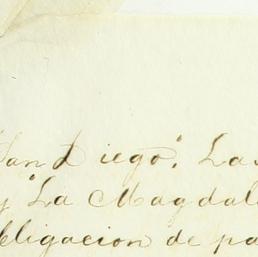 San Diego". La
y "La Magdal
bligacion de pa